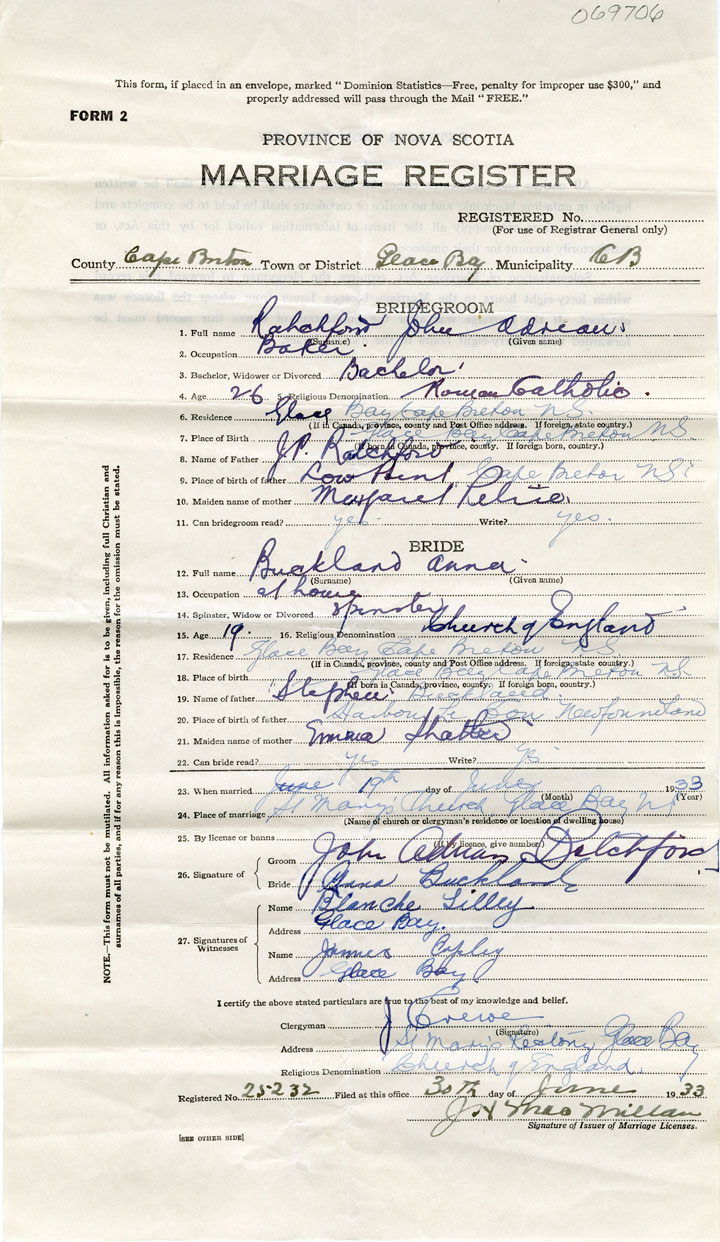 069706
This form, if placed in an envelope, marked "Dominion Statistics—Free, penalty for improper use $300," and
properly addressed will pass through the Mail "FREE."
FORM 2
PROVINCE OF NOVA SCOTIA
MARRIAGE REGISTER
REGISTERED No.
(For use of Registrar General only)
County Cape Breton Town or District Glace Bay Municipality CB
BRIDEGROOM
1. Full name Ratchford John Adrean
(Surname) (Given name)
2. Occupation Baker
3. Bachelor, Widower or Divorced Bachelor
4. Age 26 5. Religious Denomination Roman Catholic
6. Residence Glace Bay Cape Breton N.S.
(If in Canada, province, county and Post Office address. If foreign, state country.)
7. Place of Birth Glace Bay Cape Breton N.S.
(If born in Canada, province, county. If foreign born, country.)
8. Name of Father J.P. Ratchford
9. Place of birth of father Low Point Cape Breton N.S.
10. Maiden name of mother Margaret Petrie
11. Can bridegroom read? yes Write? yes.
BRIDE
12. Full name Buckland Anna
(Surname) (Given name)
13. Occupation at home
14. Spinster, Widow or Divorced Spinster
15. Age 19. 16. Religious Denomination Church of England
17. Residence Glace Bay Cape Breton N.S
(If in Canada, province, county and Post Office address. If foreign, state country.)
18. Place of birth Glace Bay Cape Breton N.S.
(If born in Canada, province, county. If foreign born, country.)
19. Name of father Stephen Buckland
20. Place of birth of father Harbour Newfoundland
21. Maiden name of mother Emma
22. Can bride read? Yes Write? Yes
23. When married June 19th day of June 1933
(Month) (Year)
24. Place of marriage St Mary's Church Glace Bay NS
(Name of church or clergyman's residence or location of dwelling house)
25. By license or banns
(If by licence, give number)
26. Signature of
Groom John Adrian Ratchford
Bride Anna Buckland
27. Signatures of Witnesses
Name Blanche Lilley
Address Glace Bay.
Name James Copley
Address Glace Bay
I certify the above stated particulars are true to the best of my knowledge and belief.
Clergyman J
(Signature)
Address St Mary's Rectory Glace Bay
Religious Denomination Church of England
Registered No. 25232 Filed at this office 30th day of June 1933
Signature of Issuer of Marriage Licenses.
[SEE OTHER SIDE]
NOTE.—This form must not be mutilated. All information asked for is to be given, including full Christian and
surnames of all parties, and if for any reason this is impossible, the reason for the omission must be stated.